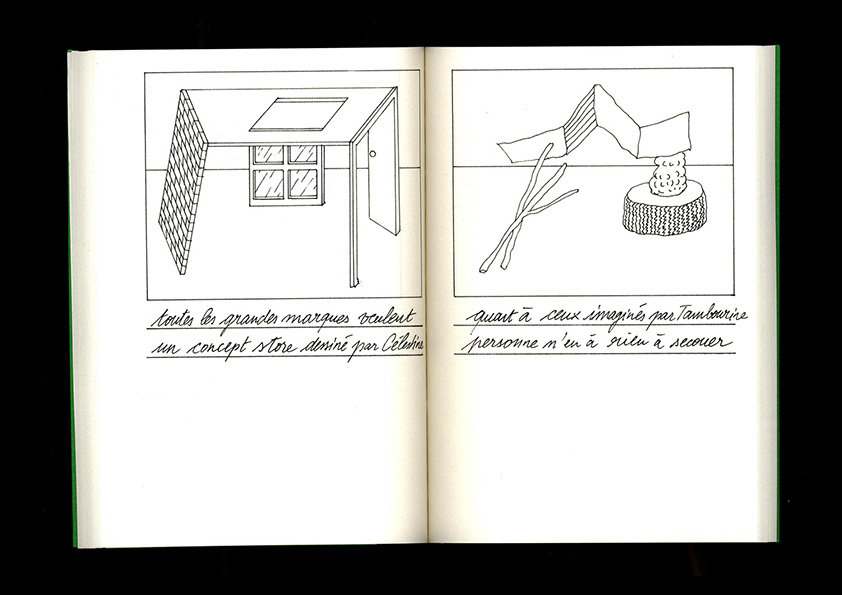 toutes les grandes marques veulent
un concept store dessiné par Célestine
quant à ceux imaginés par Tambourine
personne n'en à rien à secouer